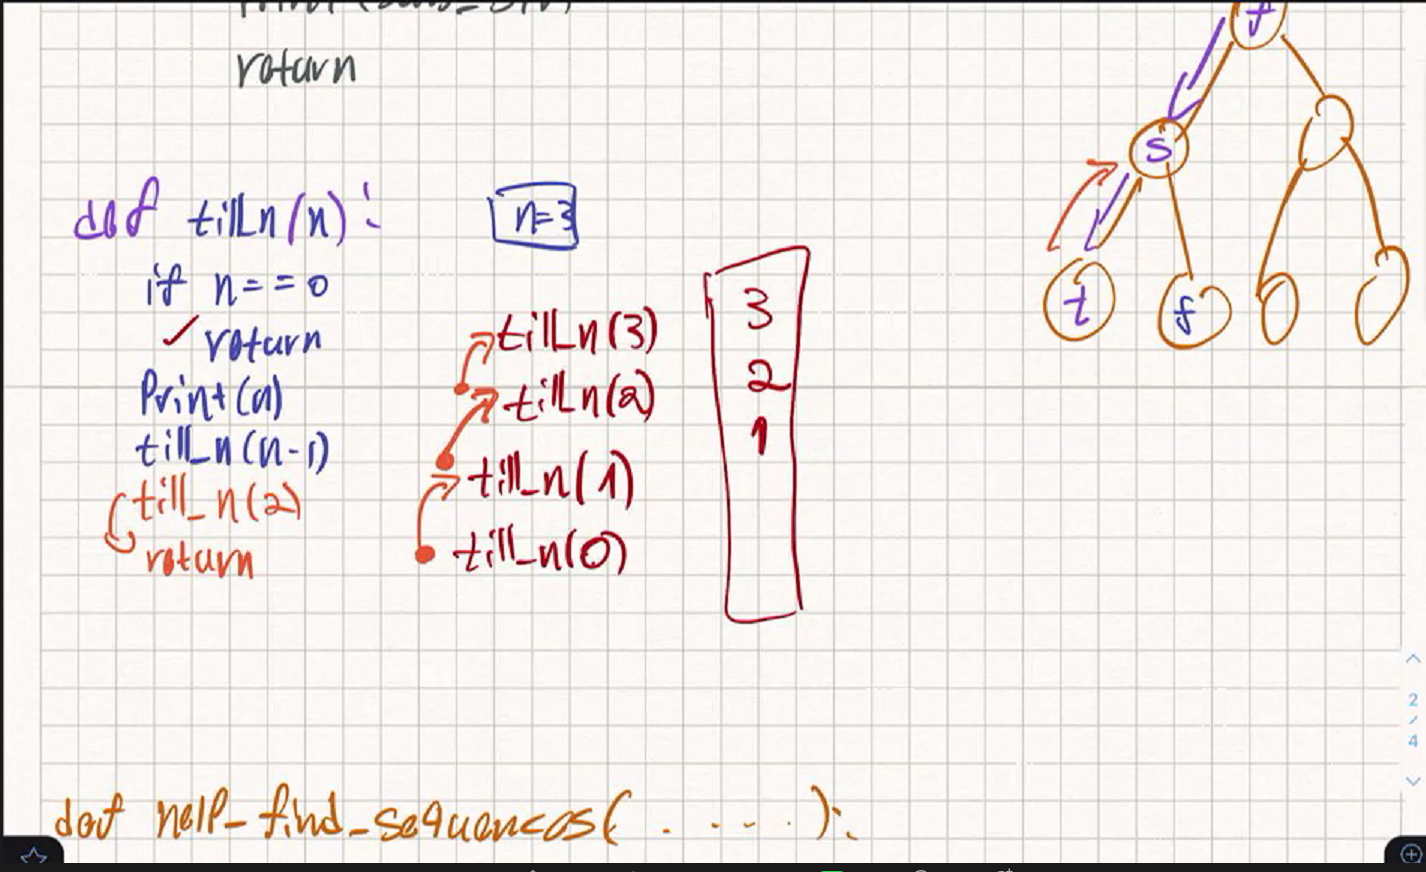 return
def till_n(n):
if n==0
return
Print(n)
till_n(n-1)
till_n(2)
return
n=3
till_n(3)
till_n(2)
till_n(1)
till_n(0)
3
2
1
s
t
f
2
4
def help_find_sequences( . . . . ):